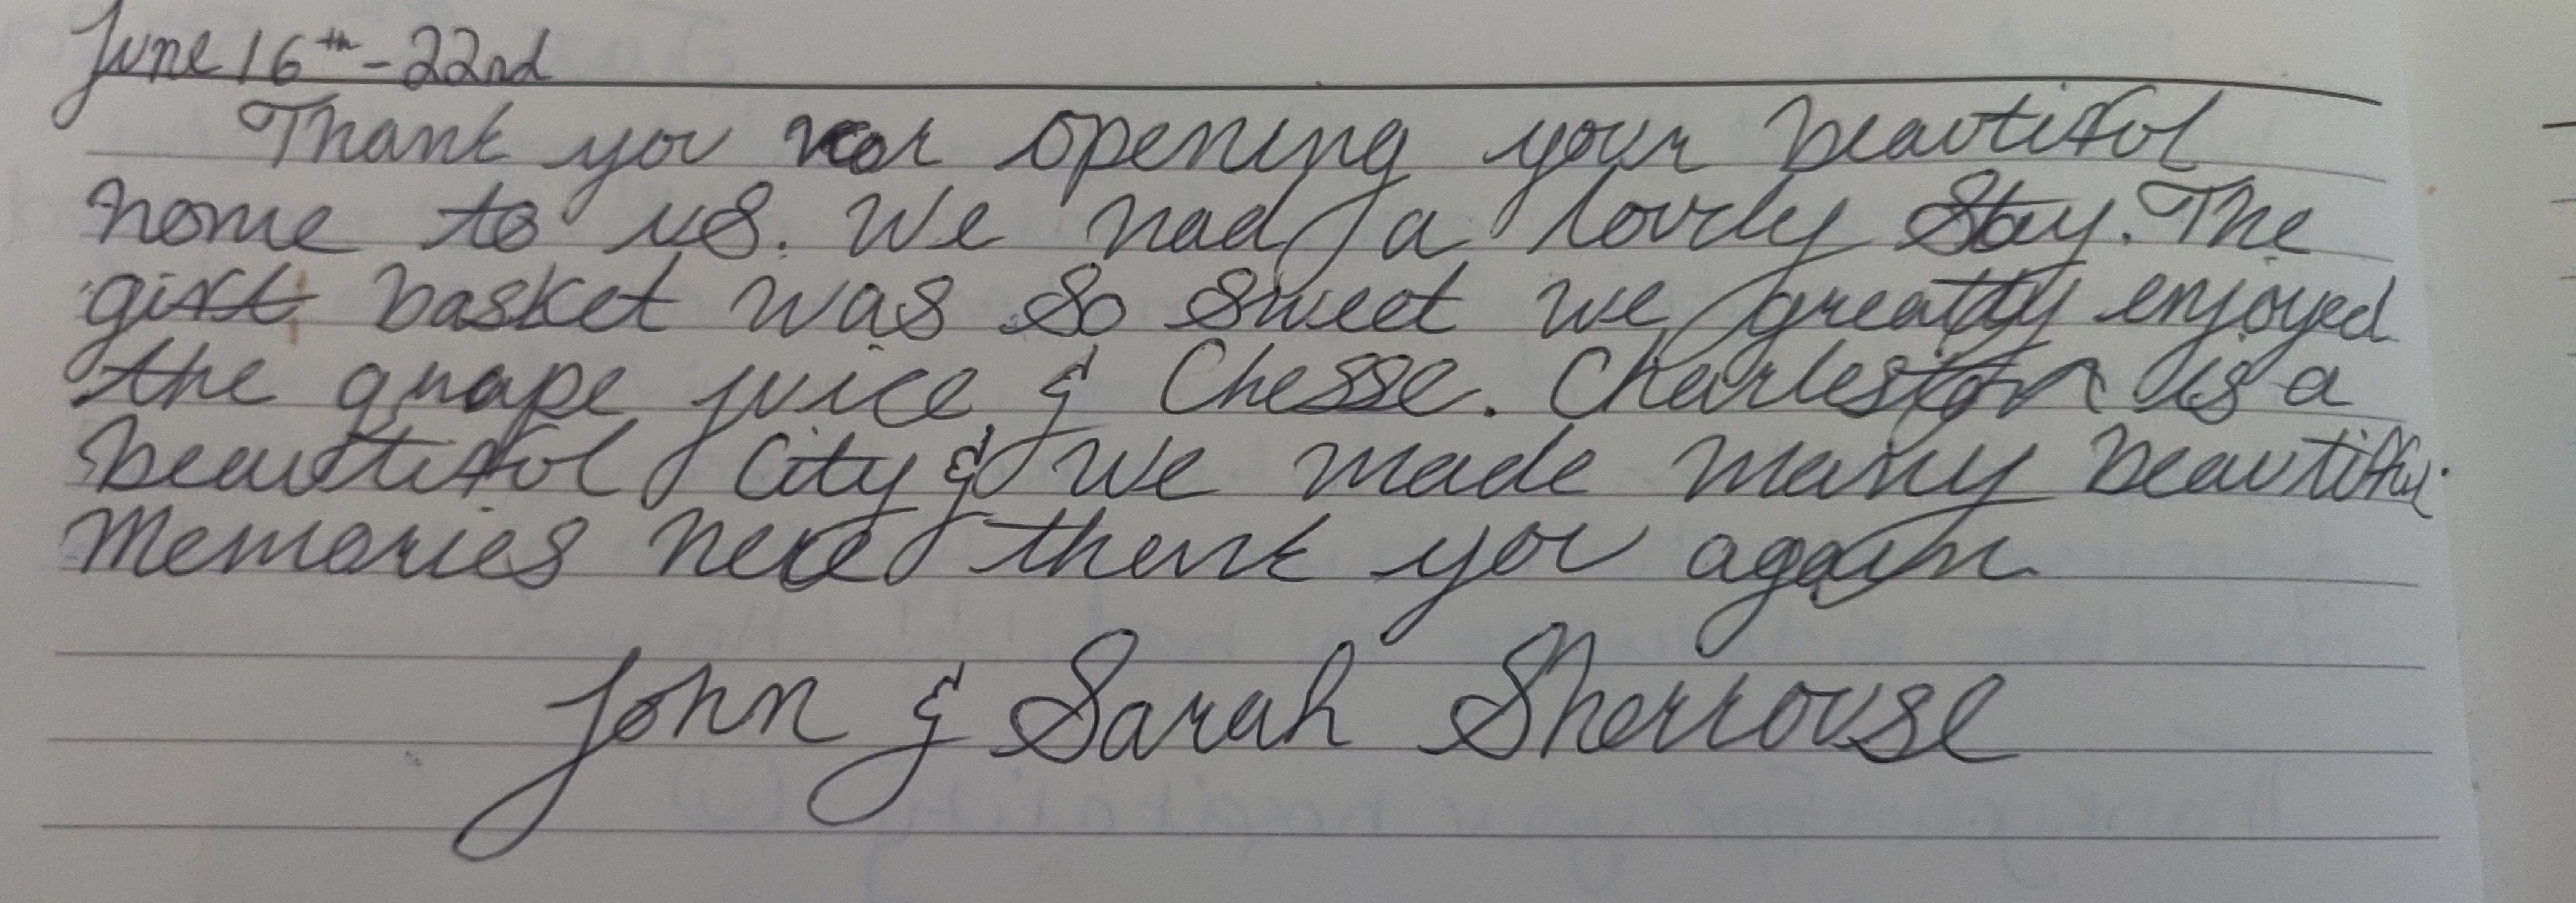 June 16th - 22nd
Thank you for opening your beautiful
home to us. We had a lovely Stay. The
gift basket was so sweet we greatly enjoyed
the grape juice & Chesse. Charleston is a
beautiful City & we made many beautiful
Memories here thank you again
John & Sarah Sherrouse